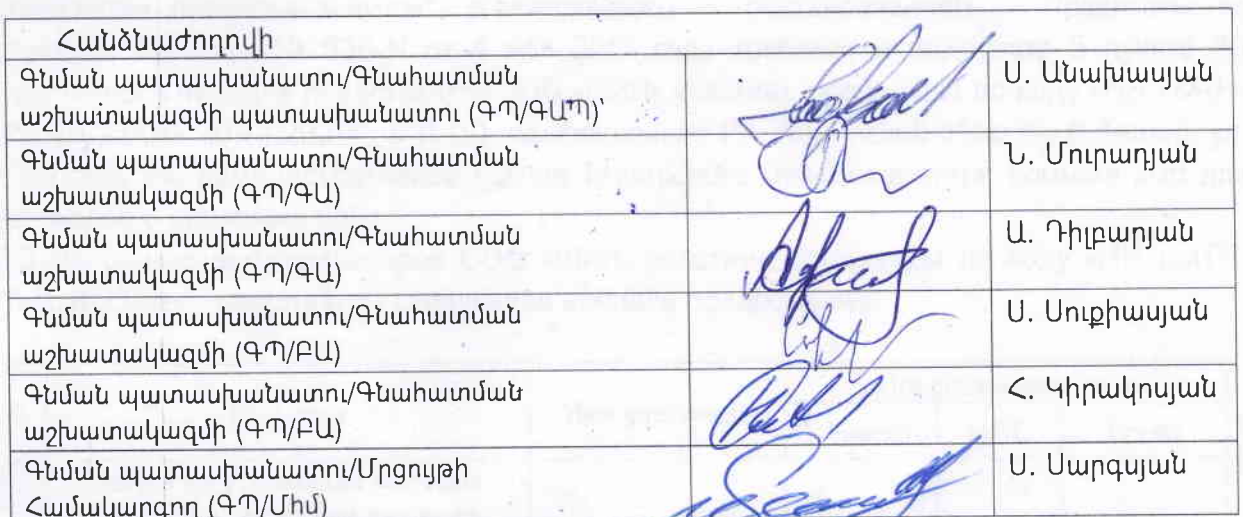 Հանձնաժողովի
Գնման պատասխանատու/Գնահատման
աշխատակազմի պատասխանատու (ԳՊ/ԳԱՊ)՝
Ս. Անախասյան
Գնման պատասխանատու/Գնահատման
աշխատակազմի (ԳՊ/ԳԱ)
Ն. Մուրադյան
Գնման պատասխանատու/Գնահատման
աշխատակազմի (ԳՊ/ԳԱ)
Ա. Դիլբարյան
Գնման պատասխանատու/Գնահատման
աշխատակազմի (ԳՊ/ԲԱ)
Ս. Սուքիասյան
Գնման պատասխանատու/Գնահատման
աշխատակազմի (ԳՊ/ԲԱ)
Հ. Կիրակոսյան
Գնման պատասխանատու/Մրցույթի
Համակարգող (ԳՊ/Միմ)
Ս. Սարգսյան